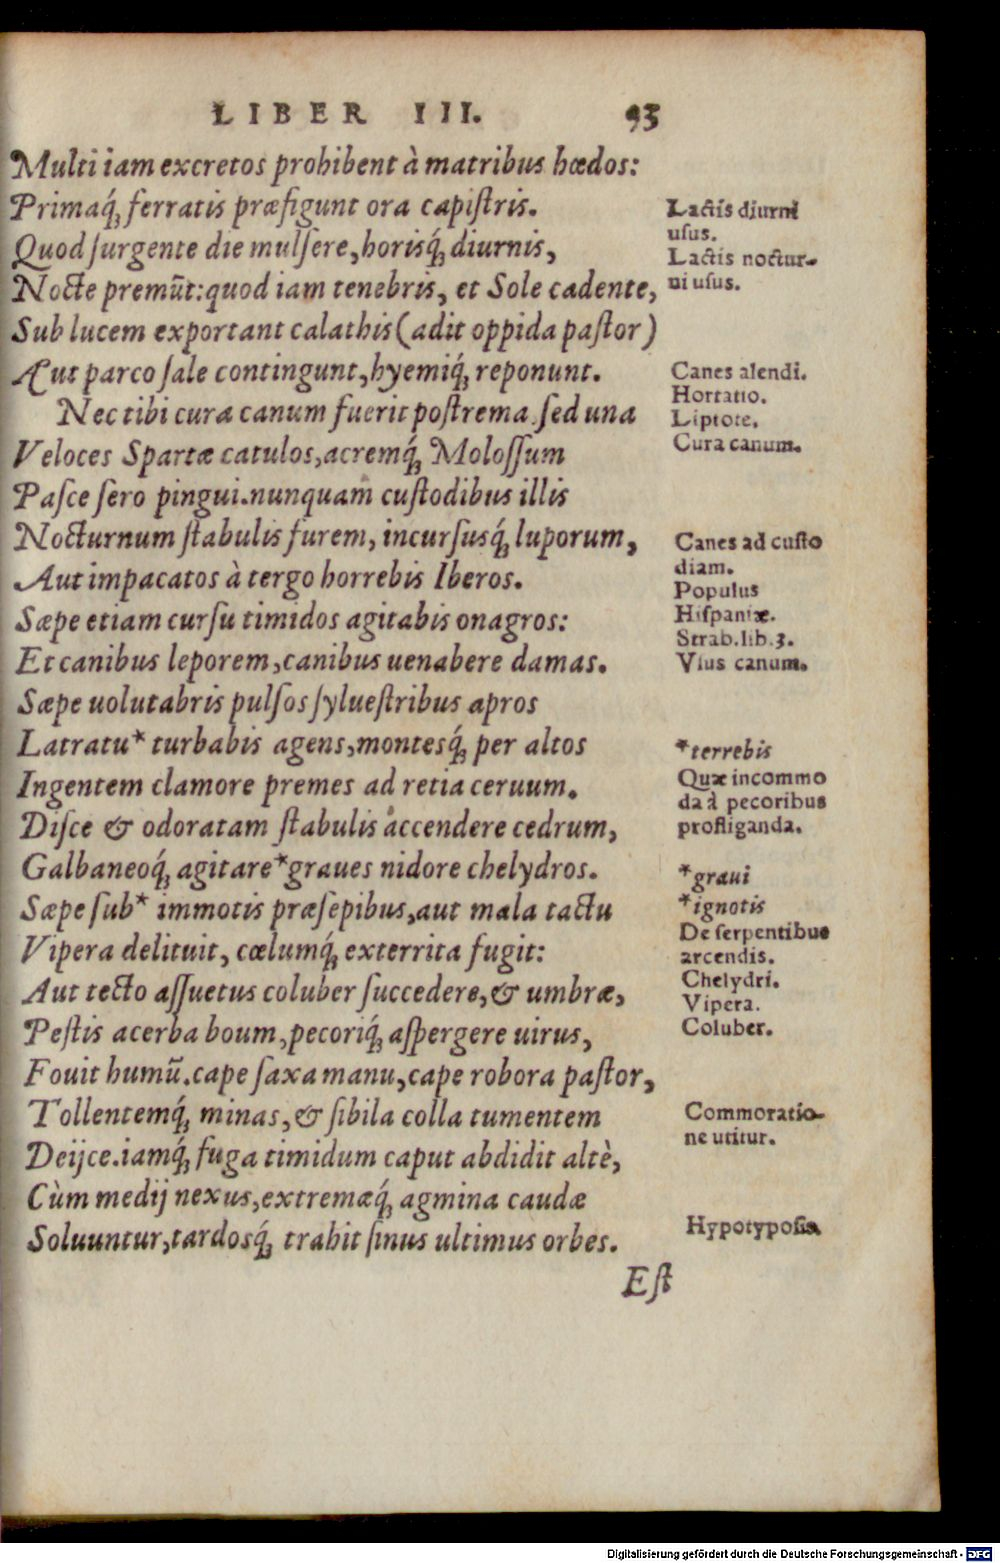 LIBER III. 93
Multi iam excretos prohibent à matribus hœdos:
Primaq́; ferratis præfigunt ora capiſtris.
Quod ſurgente die mulſere, horisq́; diurnis,
Nocte premũt: quod iam tenebris, et Sole cadente,
Sub lucem exportant calathis (adit oppida paſtor)
Aut parco ſale contingunt, hyemiq́; reponunt.
Nec tibi cura canum fuerit poſtrema. ſed una
Veloces Spartæ catulos, acremq́; Moloſſum
Paſce ſero pingui. nunquam cuſtodibus illis
Nocturnum ſtabulis furem, incurſusq́; luporum,
Aut impacatos à tergo horrebis Iberos.
Sæpe etiam curſu timidos agitabis onagros:
Et canibus leporem, canibus uenabere damas.
Sæpe uolutabris pulſos ſylueſtribus apros
Latratu* turbabis agens, montesq́; per altos
Ingentem clamore premes ad retia ceruum.
Diſce & odoratam ſtabulis accendere cedrum,
Galbaneoq́; agitare *graues nidore chelydros.
Sæpe ſub* immotis præſepibus, aut mala tactu
Vipera delituit, cœlumq́; exterrita fugit:
Aut tecto aſſuetus coluber ſuccedere, & umbræ,
Peſtis acerba boum, pecoriq́; aſpergere uirus,
Fouit humũ. cape ſaxa manu, cape robora paſtor,
Tollentemq́; minas, & ſibila colla tumentem
Deijce. iamq́; fuga timidum caput abdidit altè,
Cùm medij nexus, extremæq́; agmina caudæ
Soluuntur, tardosq́; trahit ſinus ultimus orbes.
Eſt
Lactis diurni
uſus.
Lactis noctur-
ni uſus.
Canes alendi.
Hortatio.
Liptote.
Cura canum.
Canes ad cuſto
diam.
Populus
Hiſpaniæ.
Strab. lib. 3.
Vſus canum.
*terrebis
Quæ incommo
da à pecoribus
profliganda.
*graui
*ignotis
De ſerpentibus
arcendis.
Chelydri.
Vipera.
Coluber.
Commoratio-
ne utitur.
Hypotypoſis.
Digitalisierung gefördert durch die Deutsche Forschungsgemeinschaft - DFG